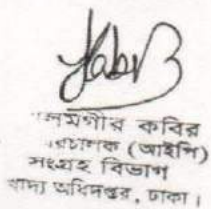 লমগীর কবির
রিচালক (আইপি)
সংগ্রহ বিভাগ
খাদ্য অধিদপ্তর, ঢাকা।